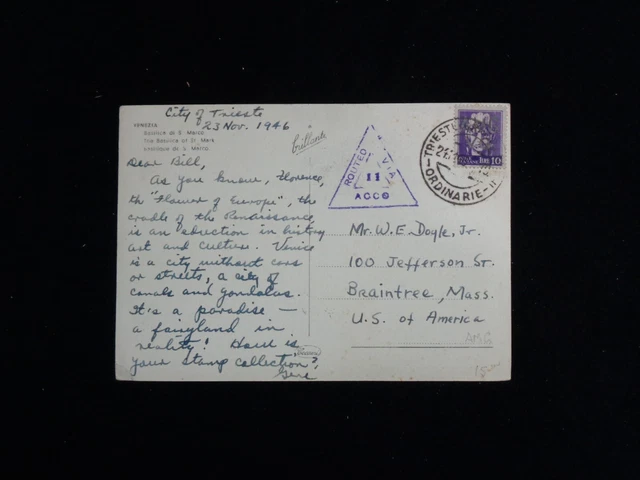 City of Trieste
23 Nov. 1946
VENEZIA
Basilica di S. Marco
The Basilica of St. Mark
Basilique de S. Marco
brillante
Dear Bill,
As you know, Florence,
th "Flower of Europe", the
cradle of the Renaissance
is an eduction in history
art and culture. Venice
is a city without cars
or streets, a city of
canals and gondolas.
It's a paradise —
a fairyland in
reality! How is
your stamp collection?
Gene
ROUTED VIA
11
ACCO
TRIESTE
ORDINARIE
LIRE 10
Mr. W. E. Dogle, Jr.
100 Jefferson St.
Braintree, Mass.
U.S. of America
AMG